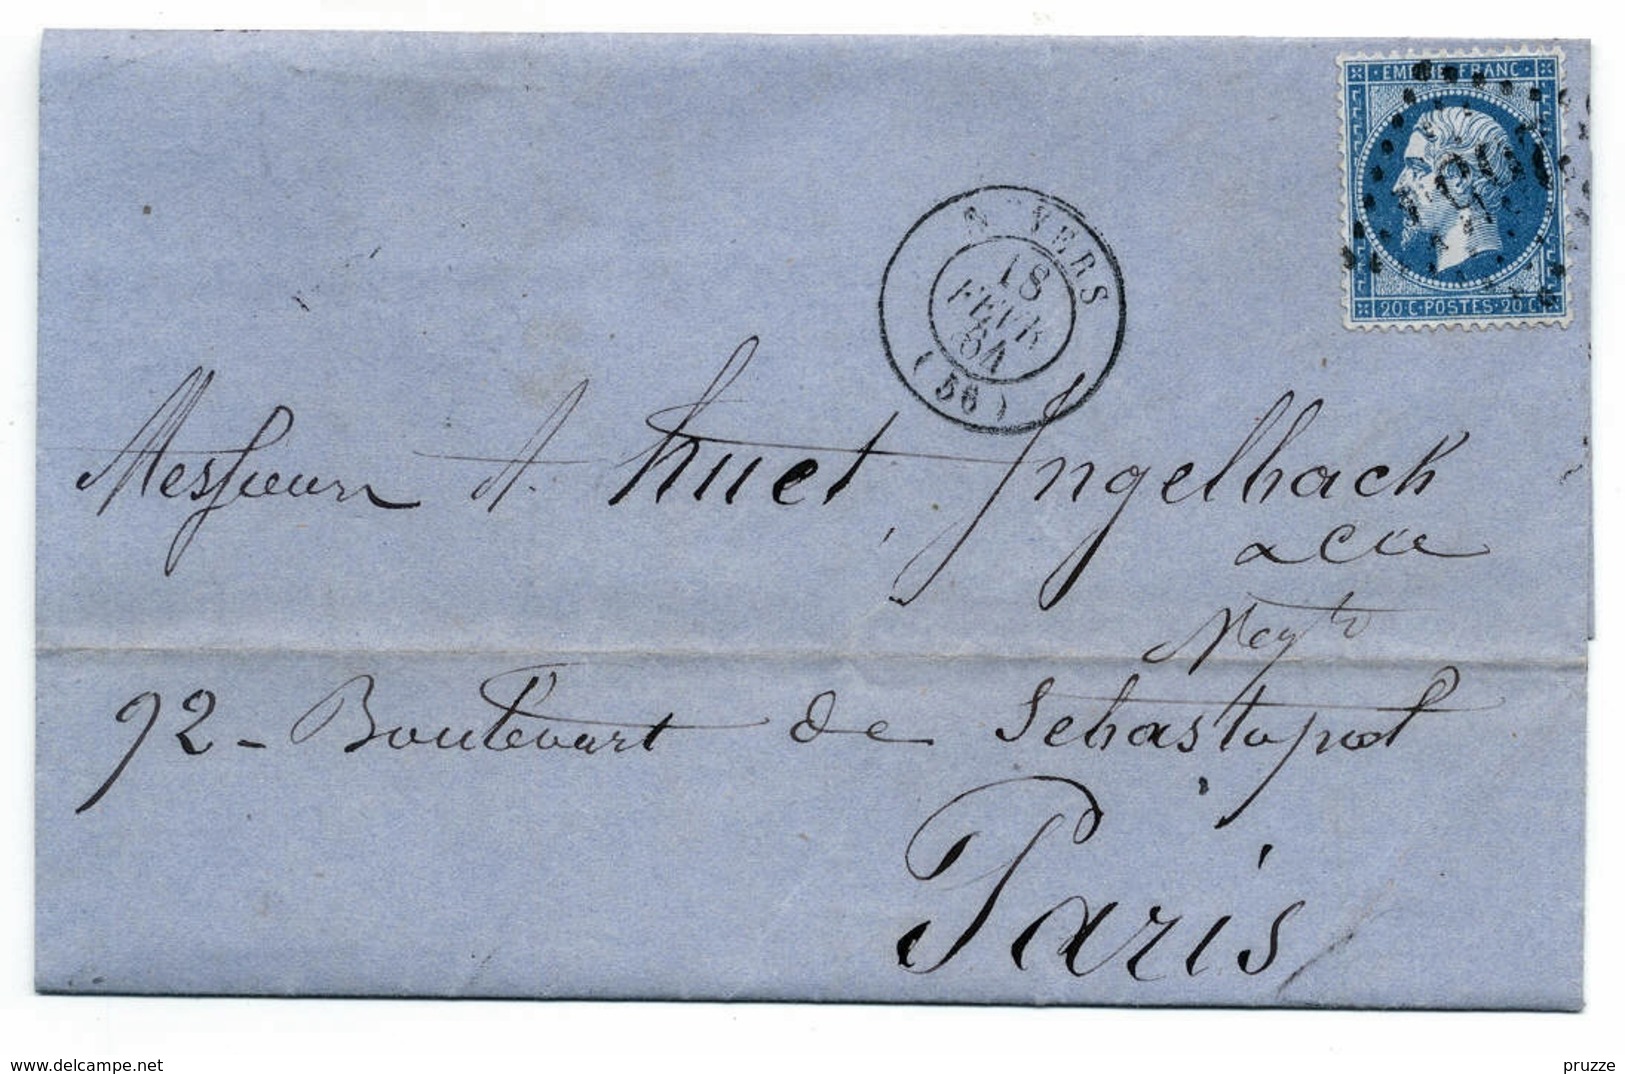 EMPIRE FRANC
20·C·POSTES·20·C
N VERS
18
FEVR
64
(56)
Messieurs A. huet, Ingelbach
& Cie
Negts
92 - Boulevart de Sebastopol
Paris
www.delcampe.net
pruzze